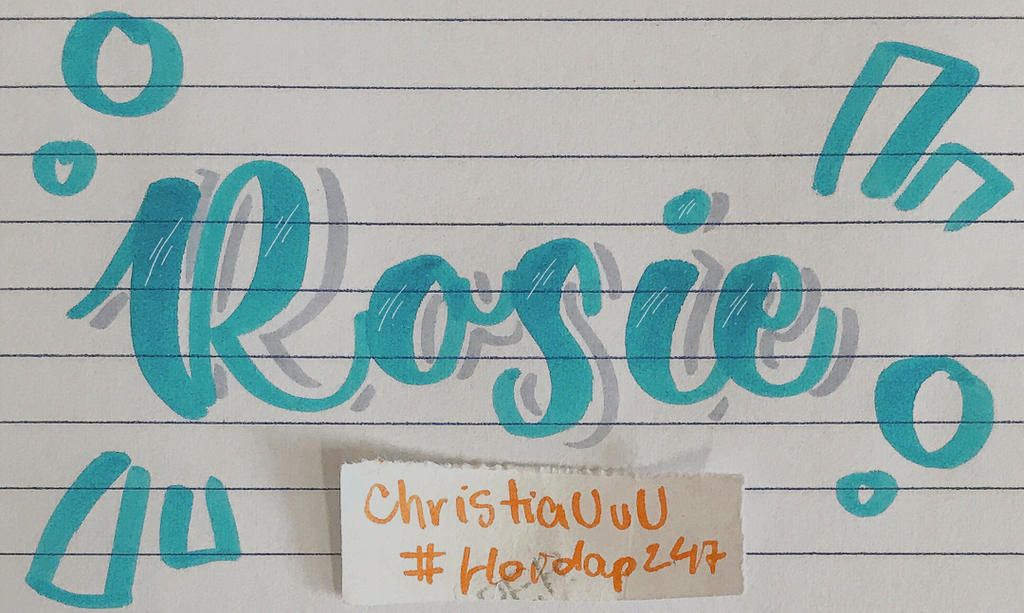 Rosie
ChristiaUuU
#Hoidap247